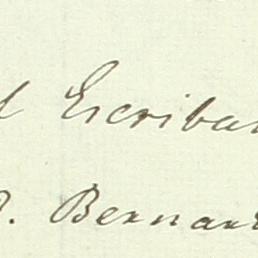 l Escriba
D. Bernar